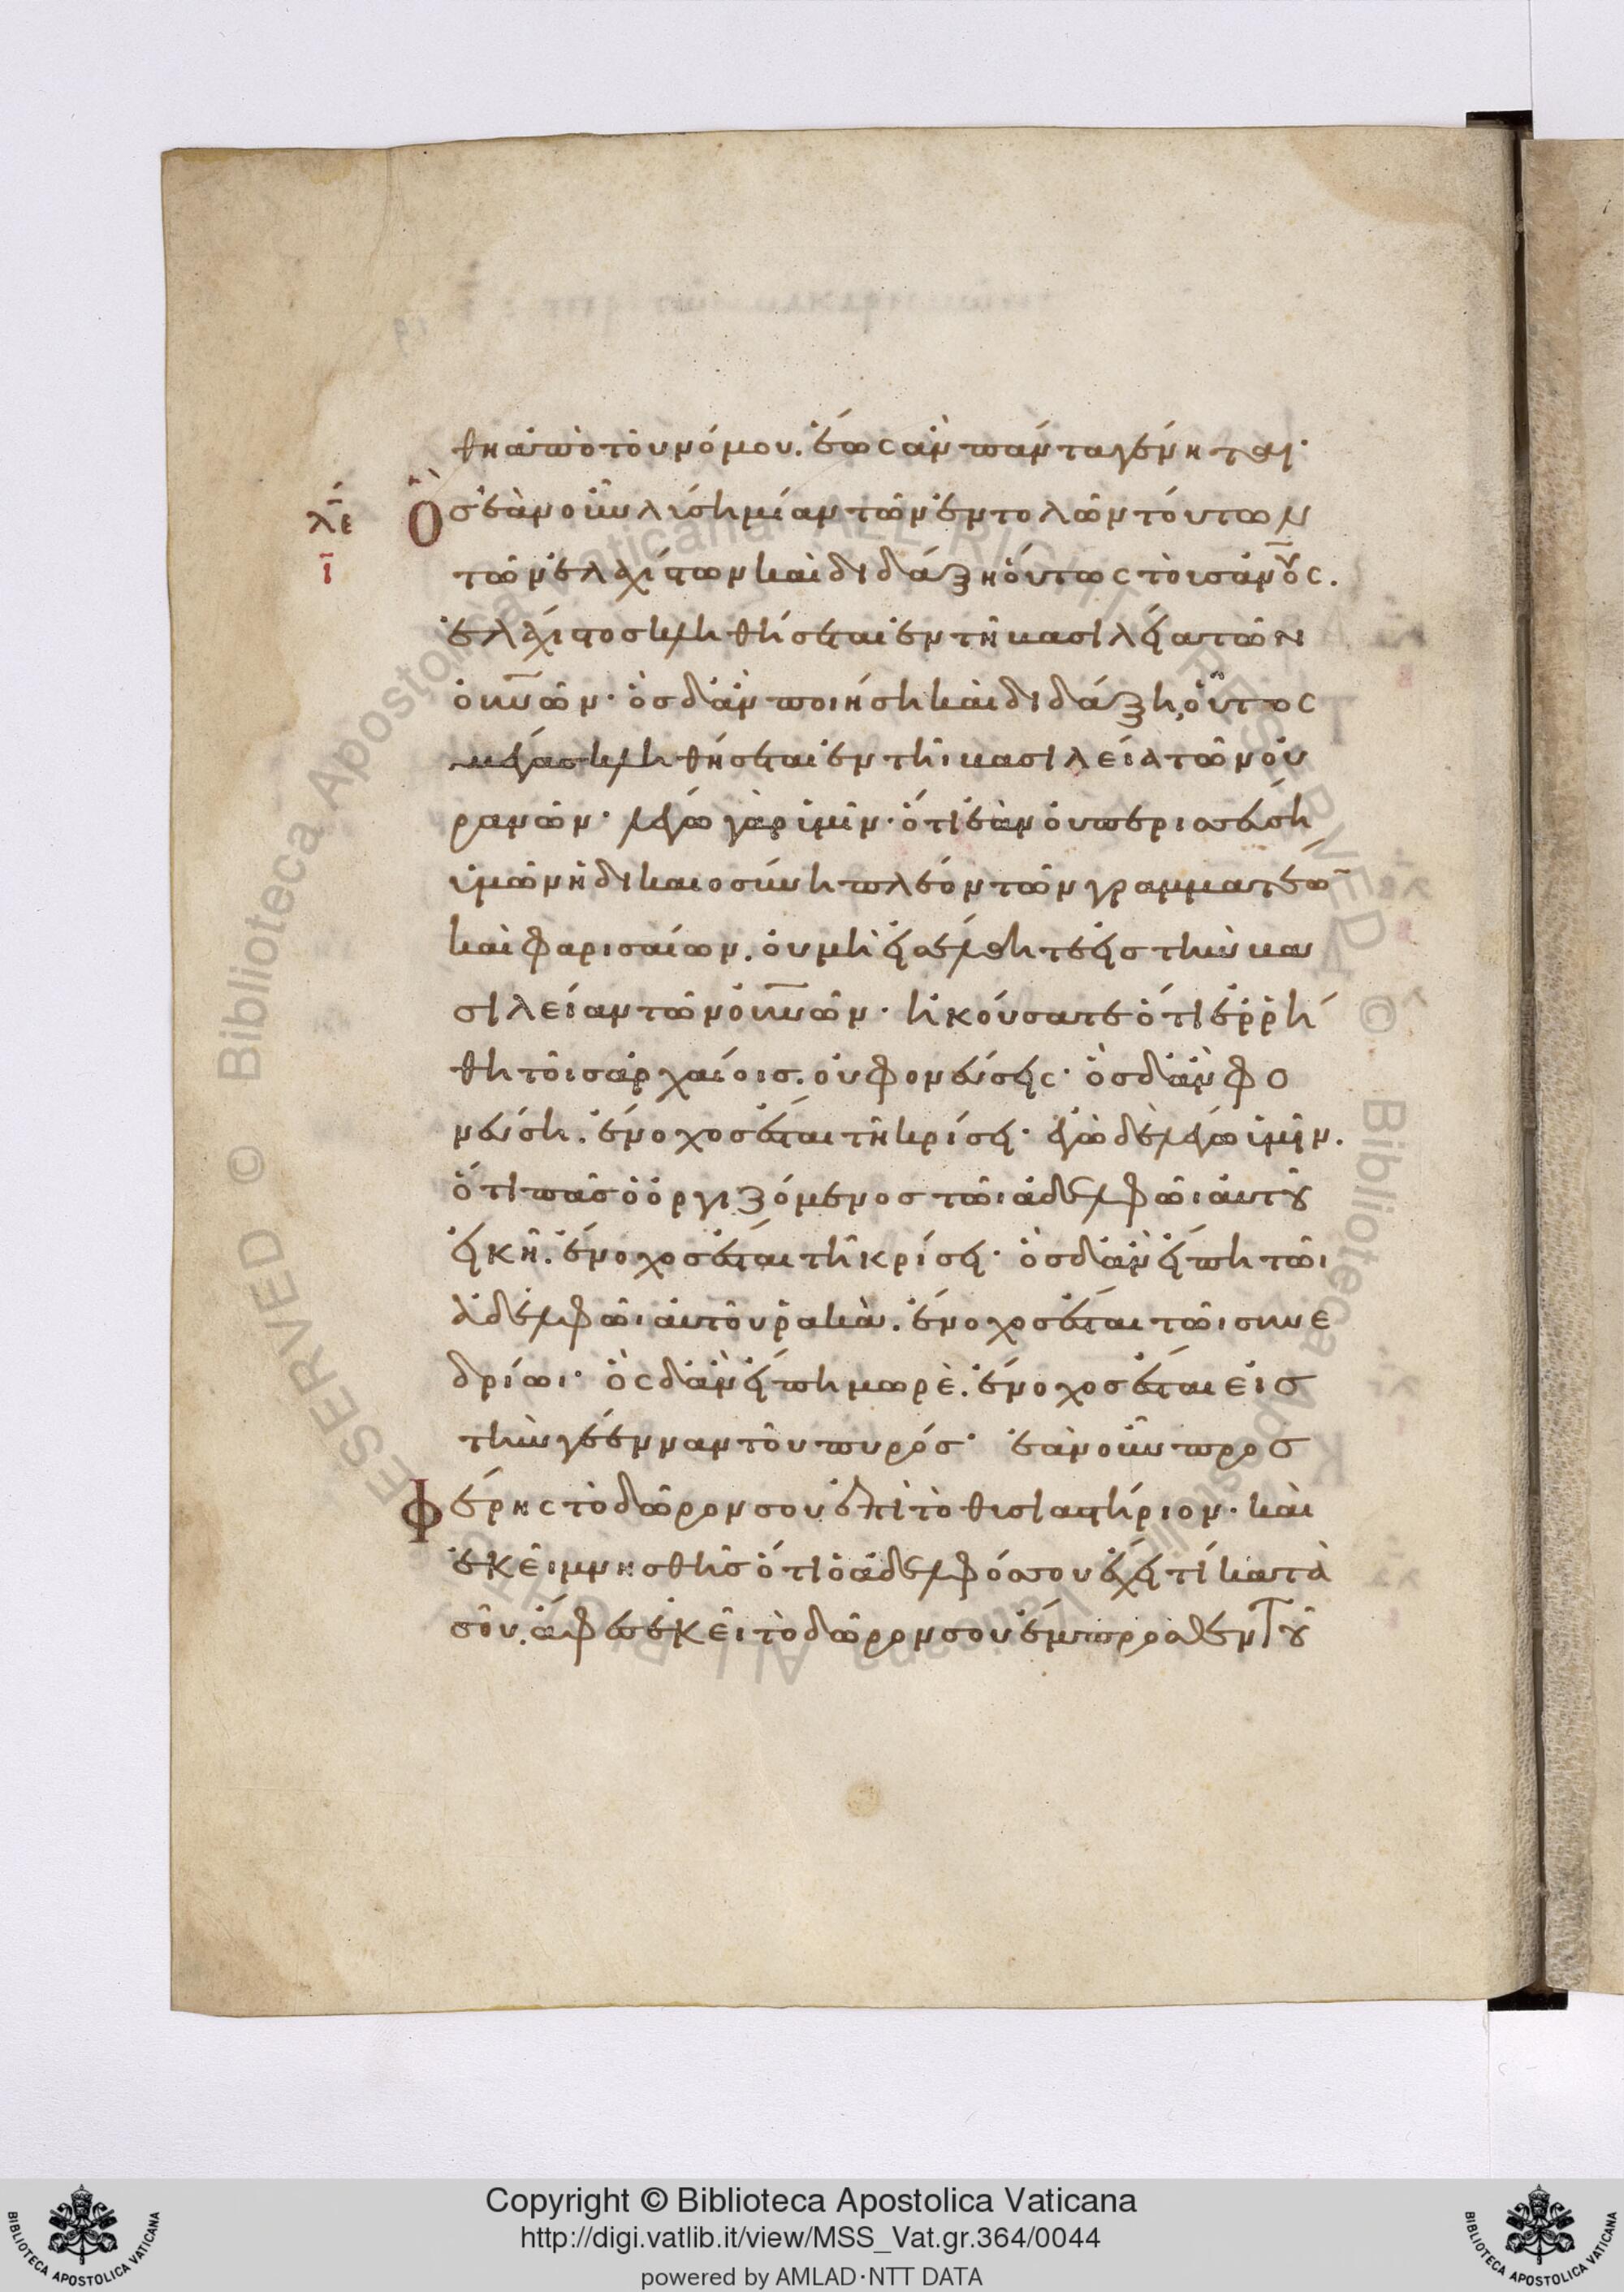 θη ἀπὸ τοῦ νόμου. ἕως ἂν πάντα γένηται·
λε Ὃς ἐὰν οὖν λύσῃ μίαν τῶν ἐντολῶν τούτων
ι τῶν ἐλαχίστων καὶ διδάξη οὕτως τοῖς ἀνους.
ἐλάχιστος κληθήσεται ἐν τῆ βασιλεία τῶν
οὐνῶν· ὃς δ' ἂν ποιήση καὶ διδάξη, οὗτος
μέγας κληθήσεται ἐν τῆι βασιλεία τῶν οὐ
ρανῶν· λέγω γὰρ ὑμῖν· ὅτι ἐὰν οὐ περισσεύση
ὑμῶν ἡ δικαιοσύνη πλέον τῶν γραμματέω
καὶ φαρισαίων. οὐ μὴ εἰσέλθητε εἰς τὴν βα
σιλείαν τῶν οὐνῶν· ἠκούσατε ὅτι ἐρρή
θη τοῖς ἀρχαίοις. οὐ φονεύσεις· ὃς δ' ἂν φο
νεύση. ἔνοχος ἔσται τῆ κρίσει· ἐγὼ δὲ λέγω ὑμῖν.
ὅτι πᾶς ὁ ὀργιζόμενος τῶι ἀδελφῶι αὐτοῦ
εἰκῆ. ἔνοχος ἔσται τῆ κρίσει· ὃς δ' ἂν εἴπη τῶι
ἀδελφῶι αὐτοῦ ῥακά. ἔνοχος ἔσται τῶι συνε
δρίωι· ὃς δ' ἂν εἴπη μωρὲ. ἔνοχος ἔσται εἰς
τὴν γέενναν τοῦ πυρός· ἐὰν οὖν προσ
φέρης τὸ δῶρον σου ἐπὶ τὸ θυσιαστήριον· καὶ
ἐκεῖ μνησθῆς ὅτι ὁ ἀδελφός σου ἔχει τί κατὰ
σοῦ. ἄφες ἐκεῖ τὸ δῶρον σου ἔμπροσθεν τοῦ
Copyright © Biblioteca Apostolica Vaticana
http://digi.vatlib.it/view/MSS_Vat.gr.364/0044
powered by AMLAD·NTT DATA